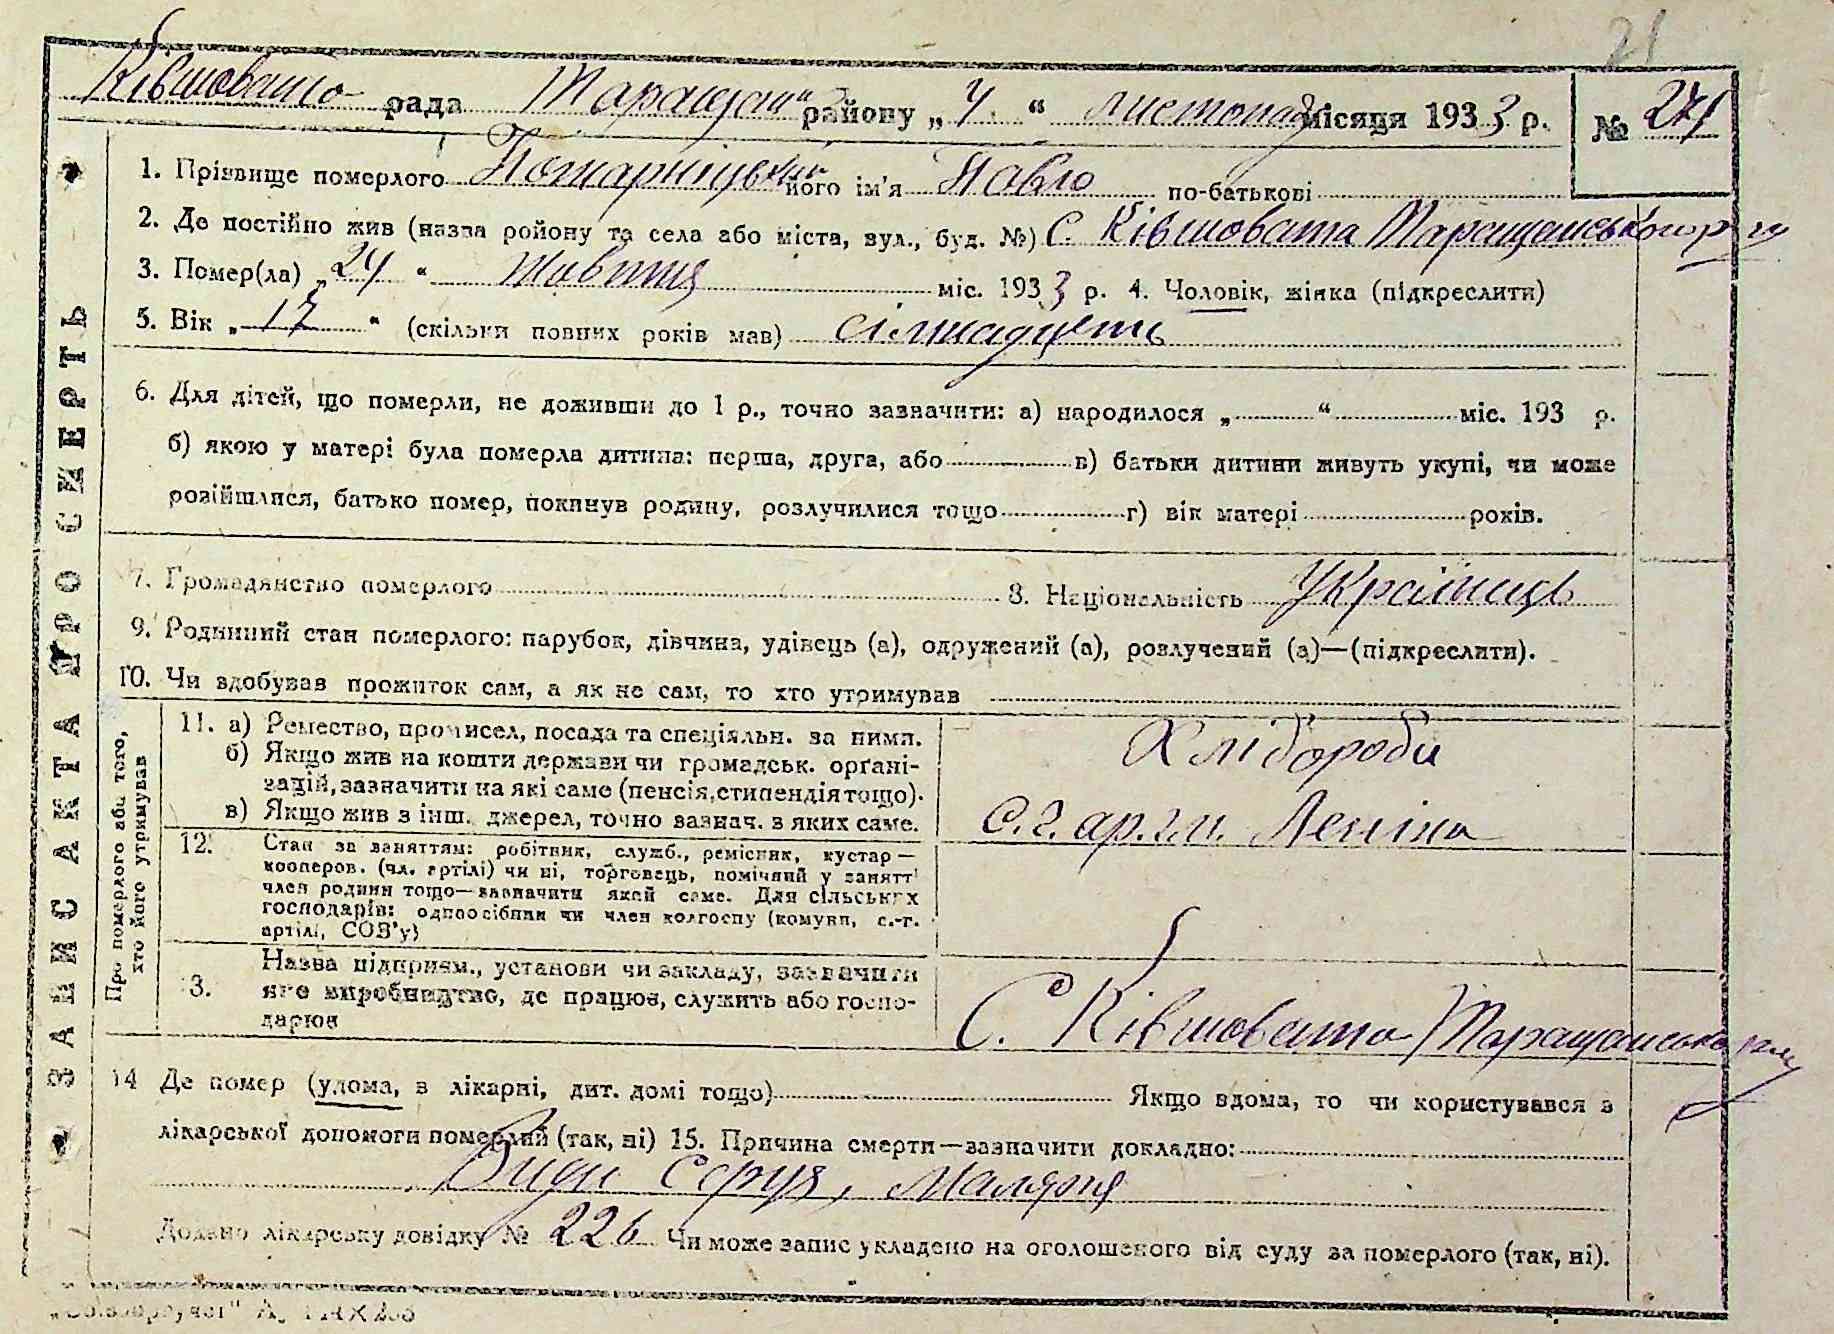 21
Ківшовато рада Таращан" району „4" листопад місяця 1933 р. № 271
1. Прізвище померлого його ім'я Павло по-батькові
2. Де постійно жив (назва ройону та села або міста, вул., буд. №) С. Ківшовата Таращанського р-ну
3. Помер(ла) „24" Жовтня міс. 1933 р. 4. Чоловік, жінка (підкреслити)
5. Вік „17" (скільки повних років мав) сімнадцеть
6. Для дітей, що померли, не доживши до 1 р., точно зазначити: а) народилося „ " міс. 193 р.
б) якою у матері була померла дитина: перша, друга, або в) батьки дитини живуть укупі, чи може
розійшлися, батько помер, покинув родину, розлучилися тощо г) вік матері років.
7. Громадянство померлого 8. Національність Українець
9. Родинний стан померлого: парубок, дівчина, удівець (а), одружений (а), розлучений (а)—(підкреслити).
10. Чи здобував прожиток сам, а як не сам, то хто утримував
ЗАПИС АКТА ПРО СМЕРТЬ
Про померлого або того,
хто його утримував
11. а) Ремество, промисел, посада та спеціяльн. за ними.
б) Якщо жив на кошти держави чи громадськ. орґані-
зацій, зазначити на які саме (пенсія, стипендія тощо).
в) Якщо жив з інш. джерел, точно зазнач. з яких саме.
Хлібороби
С.г. ар. Леніна
12. Стан за заняттям: робітник, служб., ремісник, кустар—
кооперов. (чл. артілі) чи ні, торговець, помічний у занятті
член родини тощо—зазначити який саме. Для сільських
господарів: одноосібник чи член колгоспу (комуни, с.-г.
артілі, СОЗ'у)
3. Назва підприєм., установи чи закладу, зазначити
яке виробництво, де працює, служить або госпо-
дарює
С. Ківшовато Таращанського р-ну
14 Де помер (удома, в лікарні, дит. домі тощо) Якщо вдома, то чи користувався з
лікарської допомоги померлий (так, ні) 15. Причина смерти—зазначити докладно:
Серця, Малярія
Додано лікарську довідку № 226 Чи може запис укладено на оголошеного від суду за померлого (так, ні).